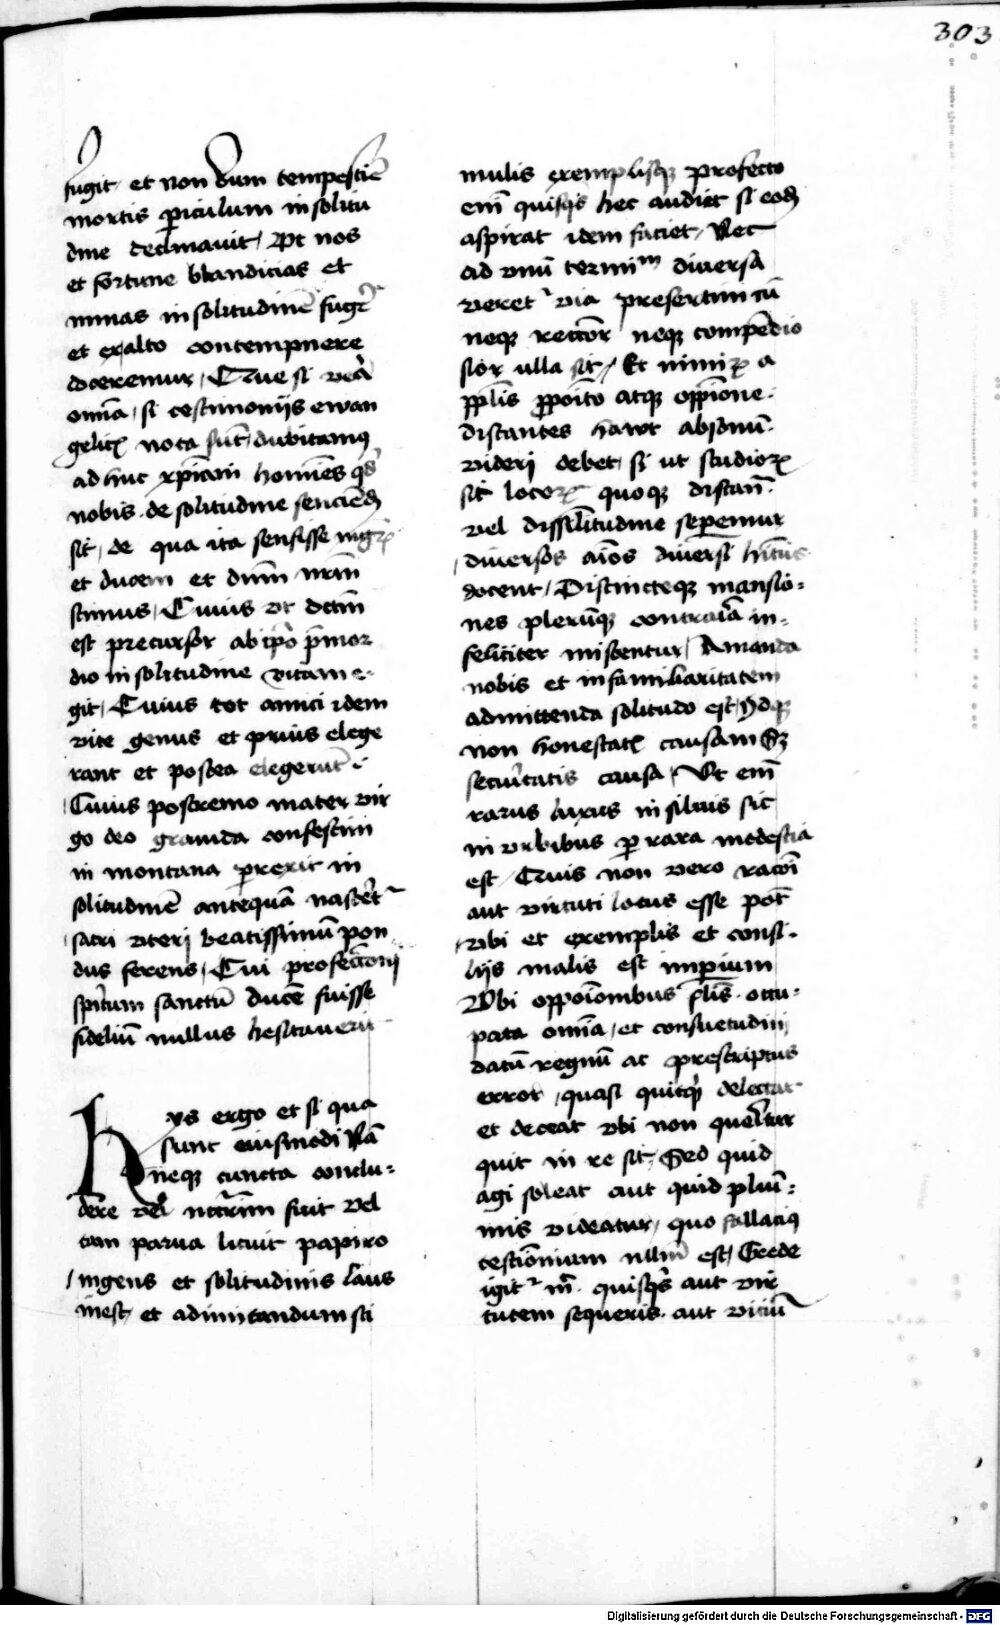 303
fugit et non dum tempestiē
mortis ꝑiculum in solitu
dine declinauit / Vt nos
et fortune blandicias et
minas in solitudinē fugẽ
et ex alto contempnere
doceremur / Que si vẽa
omīa / si testimonijs ewan
gelicꝭ nota sūt / dubitamꝰ
ad huc xp̄iani homīes qͥd
nobis de solitudine sencienđ
sit / de qua ita sensisse mgr̄m
et ducem et dnm̄ nrm̄
scimus / Cuius vt dctm̄
est precursor ab ip̄o p̄mor
dio in solitudine vitam e-
git / Cuius tot amici idem
vite genus et prius elege
rant et postea elegerūt
Cuius postremo mater vir
go deo grauida confestim
in montana ꝑrexit in
solitudinē antequā nascẽt᷑
sacri vteri beatissimū pon
dus ferens / Cui profectōni
spiritum sanctū ducē fuisse
fideliū nullus hesitauerit
Hys ergo et si qua
sunt eiusmodi Nā
neqꝫ cuncta conclu-
dere vel nc̄carim fuit vel
tam parua licuit papiro
ingens et solitudinis laus
inest / et ad imitandum sti
mulis exemplisqꝫ profecto
enī quisqͥs hec audiet si eodē
aspirat idem faciet / Nec
ad vnū terminū diuersa
veret᷑ via presertim cū
neqꝫ rector neqꝫ compēdio
sior ulla sit / Et nimiꝝ a
pp̄lis ꝓpoīto atqꝫ opp̄ione
distantes haut absonū
videri debet / si ut studioꝝ
sit locoꝝ quoqꝫ distan
vel dissil̄itudine seꝑemur
diuersos aīos diuersi hītus
docent / Distincteqꝫ mansio-
nes plerūqꝫ contraria in-
feliciter miscentur / Amanda
nobis et in familiaritatem
admittenda solitudo est / Idqꝫ
non honestatꝭ causam sꝫ
securitatis causa / Vt enī
rarus luxus in siluis sic
in vrbibus ꝑ rara modestia
est / Quis non vero racoī
aut virtuti locus esse pōt
vbi et exemplis et consi-
lijs malis est imꝑium
Vbi oppoīonibus fl̄is occu-
pata omīa / et consuetudini
datū regnū ac prescriptus
error / quasi quitqͥd delectat
et deceat vbi non querit᷑
quit in re sit / Sed quid
agi soleat aut quid pluri-
mis videatur / quo fallaciꝰ
testīonium nullū est / Crede
igit᷑ m̄ quisqͥs aut vir
tutem sequeris aut viciū
Digitalisierung gefördert durch die Deutsche Forschungsgemeinschaft - DFG